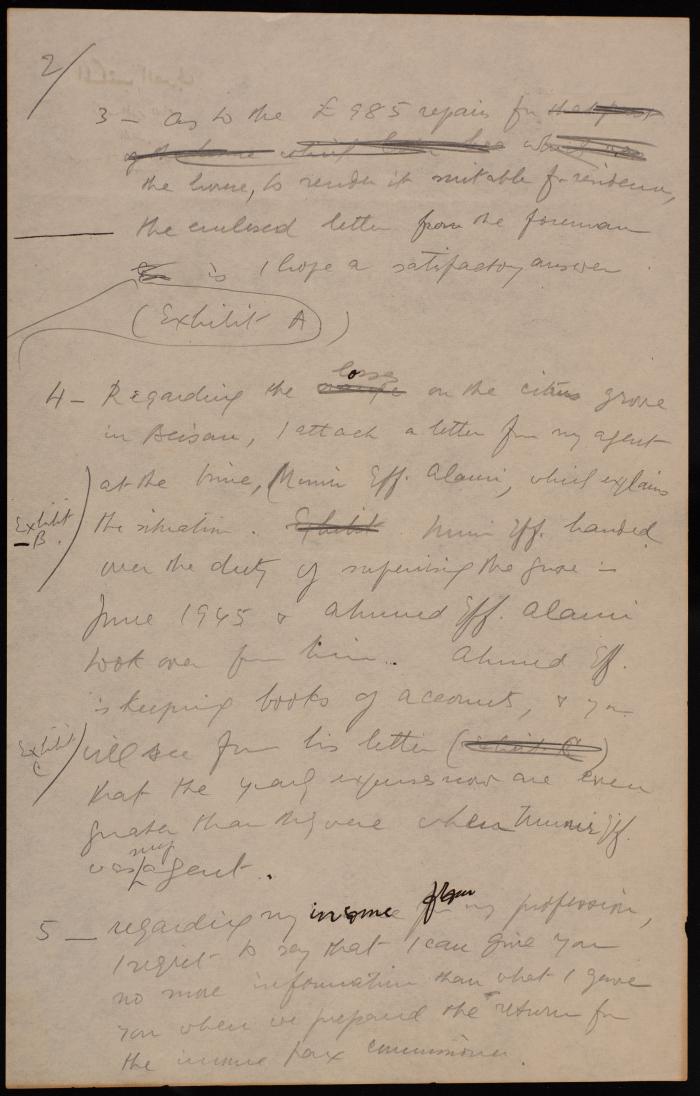 2/
3 - As to the £985 repairs for
the house, to render it suitable for residence,
the enclosed letter from the foreman
is I hope a satisfactory answer.
(Exhibit A)
losses
4 - Regarding the on the citrus grove
in Beisan, I attach a letter from my agent
at the time, (Munir Eff. Alami, which explains
Exhibit B.
the situation. Exhibit Munir Eff. handed
over the duty of supervising the grove in
June 1945 & Ahmed Eff. Alami
took over from him. Ahmed Eff.
is keeping books of accounts, & you
Exhibit C
will see from his letter (Exhibit C)
that the yearly expenses now are even
greater than they were when Munir Eff.
my
was agent.
5 - regarding my income from my profession,
I regret to say that I can give you
no more information than what I gave
you when we prepared the return for
the income tax commissioner.